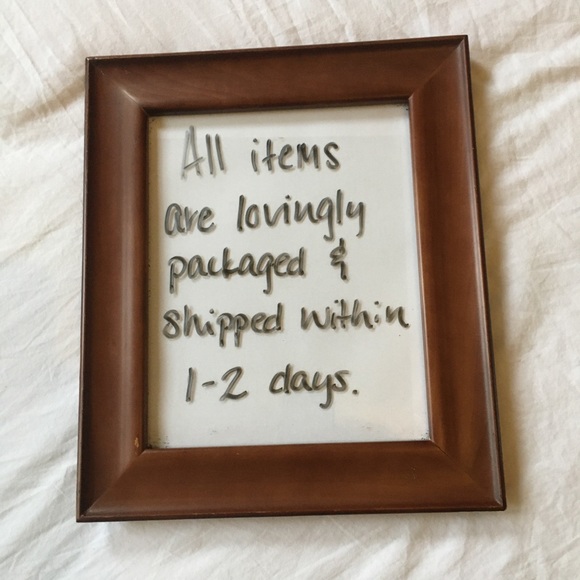 All items
are lovingly
packaged &
shipped within
1-2 days.